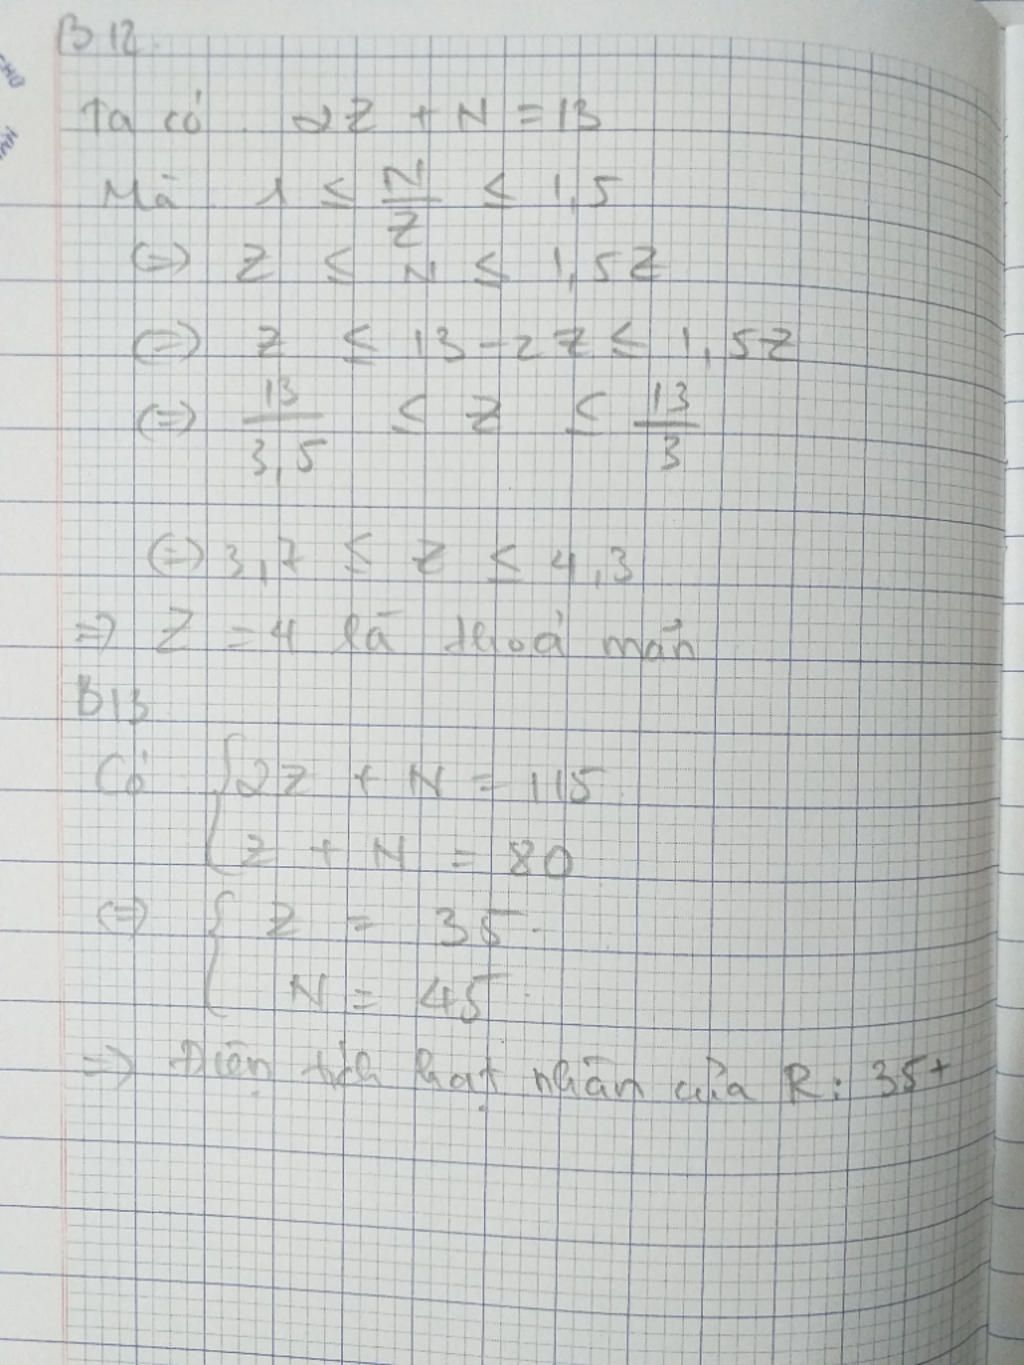 B12.
Ta có 2Z + N = 13
Mà 1 ≤ N/Z ≤ 1,5
(=) Z ≤ N ≤ 1,5Z
(=) Z ≤ 13 - 2Z ≤ 1,5Z
(=) 13/3,5 ≤ Z ≤ 13/3
(=) 3,7 ≤ Z ≤ 4,3
=) Z = 4 là thoả mãn
B13
Có { 2Z + N = 115
Z + N = 80
(=) { Z = 35
N = 45
=) Điện tích hạt nhân của R: 35+